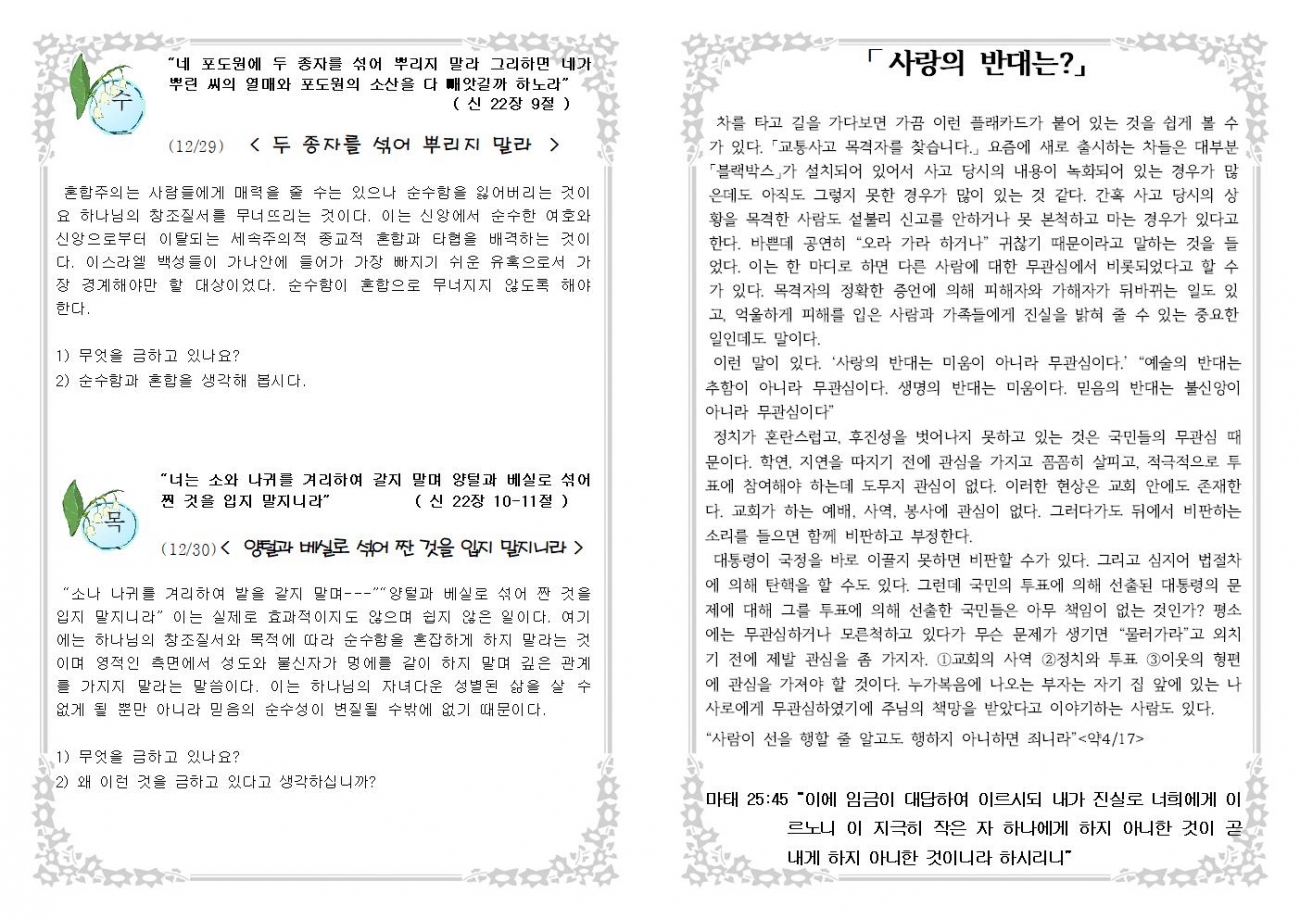 수
“네 포도원에 두 종자를 섞어 뿌리지 말라 그리하면 네가
뿌린 씨의 열매와 포도원의 소산을 다 빼앗길까 하노라”
( 신 22장 9절 )
(12/29) < 두 종자를 섞어 뿌리지 말라 >
혼합주의는 사람들에게 매력을 줄 수는 있으나 순수함을 잃어버리는 것이
요 하나님의 창조질서를 무너뜨리는 것이다. 이는 신앙에서 순수한 여호와
신앙으로부터 이탈되는 세속주의적 종교적 혼합과 타협을 배격하는 것이
다. 이스라엘 백성들이 가나안에 들어가 가장 빠지기 쉬운 유혹으로서 가
장 경계해야만 할 대상이었다. 순수함이 혼합으로 무너지지 않도록 해야
한다.
1) 무엇을 금하고 있나요?
2) 순수함과 혼합을 생각해 봅시다.
목
“너는 소와 나귀를 겨리하여 갈지 말며 양털과 베실로 섞어
짠 것을 입지 말지니라” ( 신 22장 10-11절 )
(12/30) < 양털과 베실로 섞어 짠 것을 입지 말지니라 >
“소나 나귀를 겨리하여 밭을 갈지 말며---”“양털과 베실로 섞어 짠 것을
입지 말지니라” 이는 실제로 효과적이지도 않으며 쉽지 않은 일이다. 여기
에는 하나님의 창조질서와 목적에 따라 순수함을 혼잡하게 하지 말라는 것
이며 영적인 측면에서 성도와 불신자가 멍에를 같이 하지 말며 깊은 관계
를 가지지 말라는 말씀이다. 이는 하나님의 자녀다운 성별된 삶을 살 수
없게 될 뿐만 아니라 믿음의 순수성이 변질될 수밖에 없기 때문이다.
1) 무엇을 금하고 있나요?
2) 왜 이런 것을 금하고 있다고 생각하십니까?
「 사랑의 반대는?」
차를 타고 길을 가다보면 가끔 이런 플래카드가 붙어 있는 것을 쉽게 볼 수
가 있다. 「교통사고 목격자를 찾습니다.」 요즘에 새로 출시하는 차들은 대부분
「블랙박스」가 설치되어 있어서 사고 당시의 내용이 녹화되어 있는 경우가 많
은데도 아직도 그렇지 못한 경우가 많이 있는 것 같다. 간혹 사고 당시의 상
황을 목격한 사람도 섣불리 신고를 안하거나 못 본척하고 마는 경우가 있다고
한다. 바쁜데 공연히 “오라 가라 하거나” 귀찮기 때문이라고 말하는 것을 들
었다. 이는 한 마디로 하면 다른 사람에 대한 무관심에서 비롯되었다고 할 수
가 있다. 목격자의 정확한 증언에 의해 피해자와 가해자가 뒤바뀌는 일도 있
고, 억울하게 피해를 입은 사람과 가족들에게 진실을 밝혀 줄 수 있는 중요한
일인데도 말이다.
이런 말이 있다. ‘사랑의 반대는 미움이 아니라 무관심이다.’ “예술의 반대는
추함이 아니라 무관심이다. 생명의 반대는 미움이다. 믿음의 반대는 불신앙이
아니라 무관심이다”
정치가 혼란스럽고, 후진성을 벗어나지 못하고 있는 것은 국민들의 무관심 때
문이다. 학연, 지연을 따지기 전에 관심을 가지고 꼼꼼히 살피고, 적극적으로 투
표에 참여해야 하는데 도무지 관심이 없다. 이러한 현상은 교회 안에도 존재한
다. 교회가 하는 예배, 사역, 봉사에 관심이 없다. 그러다가도 뒤에서 비판하는
소리를 들으면 함께 비판하고 부정한다.
대통령이 국정을 바로 이끌지 못하면 비판할 수가 있다. 그리고 심지어 법절차
에 의해 탄핵을 할 수도 있다. 그런데 국민의 투표에 의해 선출된 대통령의 문
제에 대해 그를 투표에 의해 선출한 국민들은 아무 책임이 없는 것인가? 평소
에는 무관심하거나 모른척하고 있다가 무슨 문제가 생기면 “물러가라”고 외치
기 전에 제발 관심을 좀 가지자. ①교회의 사역 ②정치와 투표 ③이웃의 형편
에 관심을 가져야 할 것이다. 누가복음에 나오는 부자는 자기 집 앞에 있는 나
사로에게 무관심하였기에 주님의 책망을 받았다고 이야기하는 사람도 있다.
“사람이 선을 행할 줄 알고도 행하지 아니하면 죄니라”<약4/17>
마태 25:45 “이에 임금이 대답하여 이르시되 내가 진실로 너희에게 이
르노니 이 지극히 작은 자 하나에게 하지 아니한 것이 곧
내게 하지 아니한 것이니라 하시리니”